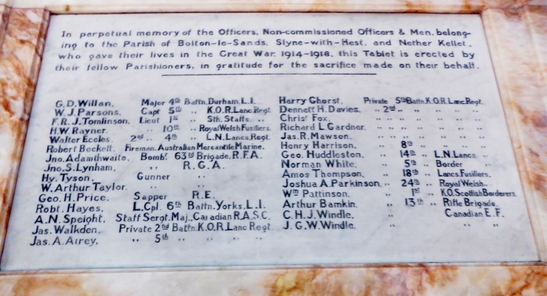 In perpetual memory of the Officers, Non-commissioned Officers & Men, belong-
ing to the Parish of Bolton-le-Sands, Slyne-with-Hest, and Nether Kellet,
who gave their lives in the Great War 1914-1918, this Tablet is erected by
their fellow Parishioners, in gratitude for the sacrifice made on their behalf.
G.D. Willan, Major 4th Battn. Durham. L.I.
W.J. Parsons, Capt 5th " K.O.R. Lanc Regt
F.R.J. Tomlinson, Lieut 1st " Sth. Staffs. "
H.W. Rayner " 10th " Royal Welsh Fusiliers.
Walter Eccles " 2nd " 4th " L.N. Lancs. Regt.
Robert Beckett, Fireman, Australian Mercantile Marine.
Jno. Adamthwaite, Bomb! 63rd Brigade, R.F.A.
Jno. S. Lynham, " R.G.A.
Hy. Tyson, Gunner " "
W. Arthur Taylor, " "
Geo. H. Price, Sapper R.E.
Robt. Hayes, L.Cpl. 6th Battn. Yorks. L.I.
A.N. Speight, Staff Sergt. Maj., Canadian R.A.S.C.
Jas. Walkden, Private 2nd Battn. K.O.R. Lanc Regt
Jas. A. Airey, " 5th " " "
Harry Ghorst, Private 5th Battn. K.O.R. Lanc. Regt.
Dennett H. Davies, " 2nd " " "
Christr Fox, " " " "
Richard L. Gardner, " " " "
Jas. R. Mawson, " " " "
Henry Harrison, " 8th " "
Geo. Huddleston, " 14th " L.N. Lancs. "
Norman White, " 5th " Border "
Amos Thompson, " 18th " Lancs. Fusiliers.
Joshua A. Parkinson, " 24th " Royal Welsh. "
Wm Pattinson, " 1st " K.O. Scottish Borderers.
Arthur Bamkin, " 13th " Rifle Brigade.
C.H.J. Windle, " Canadian E.F.
J.G.W. Windle, " " "